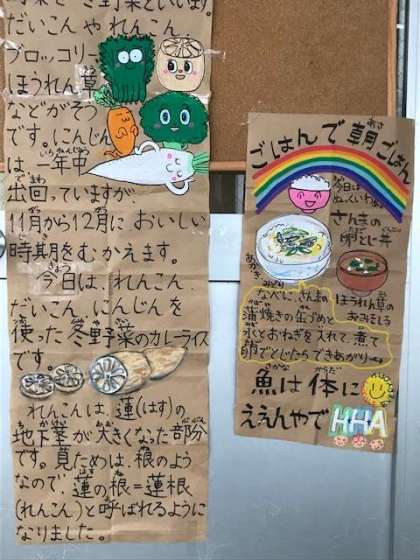 野菜を冬野菜といいます。
だいこんやれんこん、
ブロッコリー
ほうれん草
などがそう
です。にんじん
は一年中
出回っていますが、
11月から12月に、おいしい
時期をむかえます。
今日は、れんこん、
だいこん、にんじんを
使った冬野菜のカレーライス
です。
れんこんは、蓮(はす)の
地下茎が大きくなった部分
です。見ためは、根のよう
なので、蓮の根=蓮根
(れんこん)と呼ばれるように
なりました。
ごはんで朝ごはん
今日は
さんまの
卵とじ丼
なべに、さんまの
蒲焼きの缶づめと
水とおねぎを入れて、煮て
卵でとじたらできあがり
ほうれん草の
おみそしる
魚は体に
ええんやで
HHA